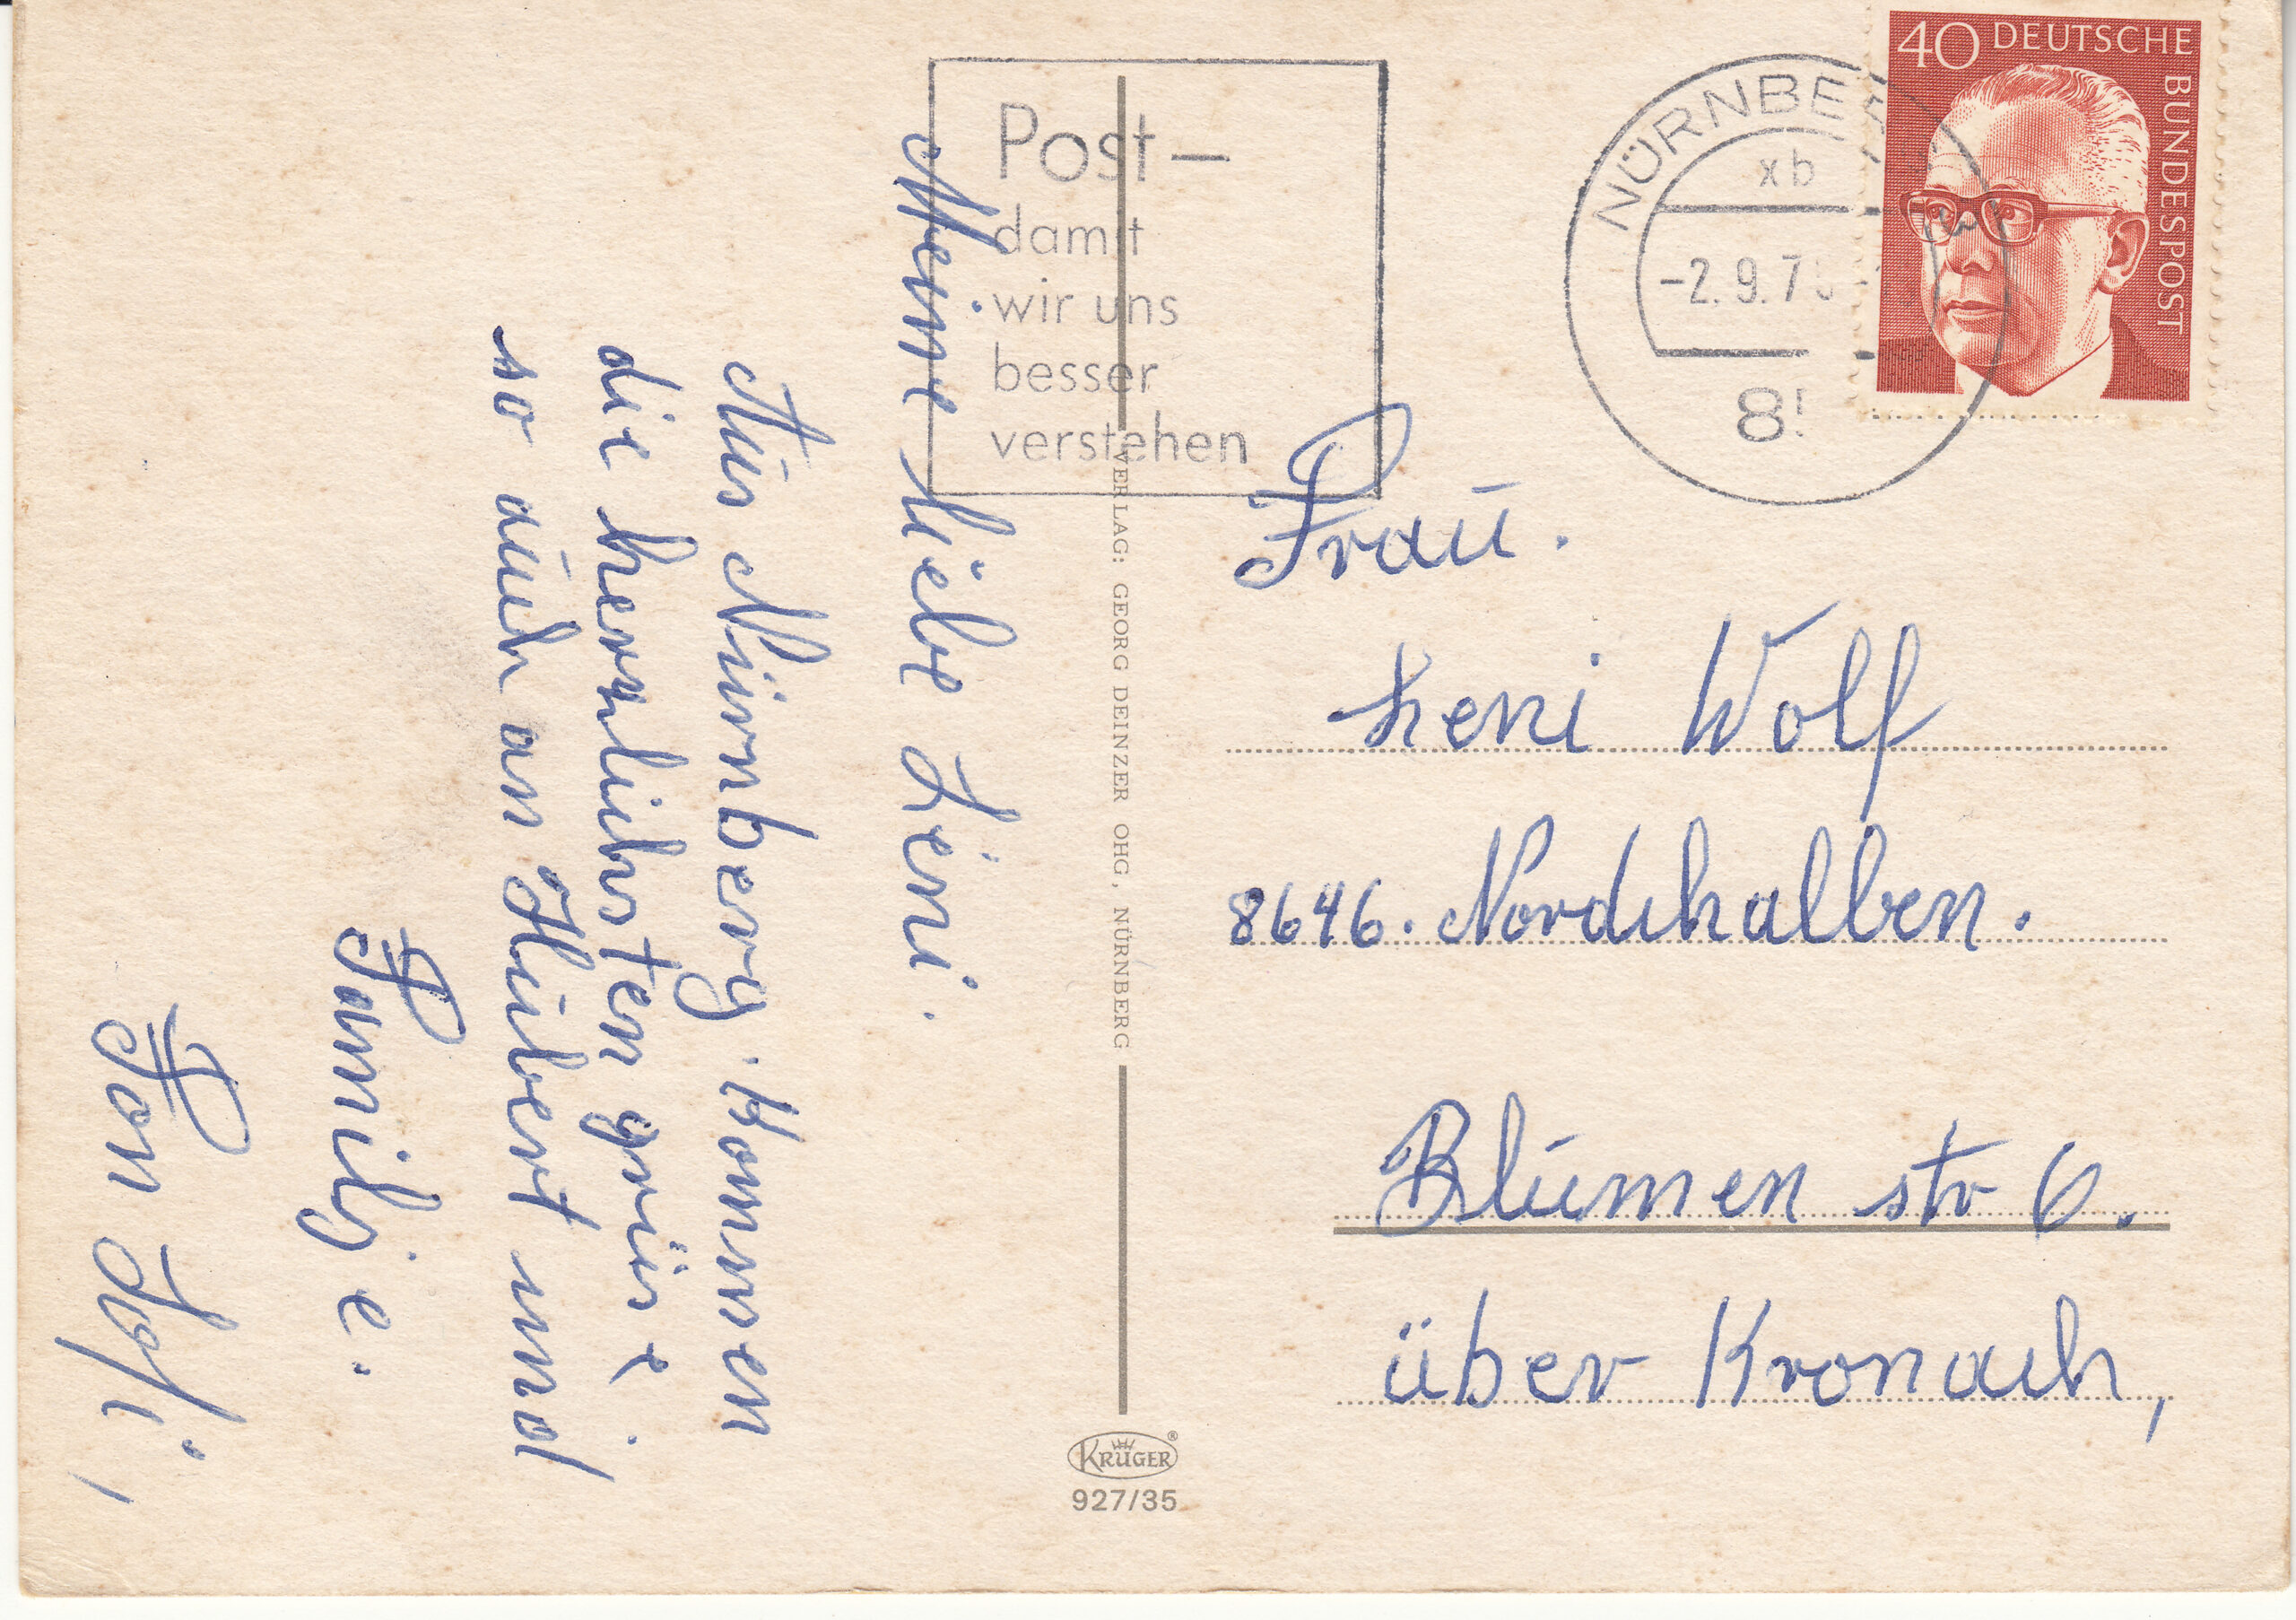 Meine liebe Leni.
Aus Nürnberg. Kommen
die herzlichsten grüse.
so auch an Hubert und
Familje.
Von
Post –
damit
wir uns
besser
verstehen
NÜRNBER
xb
-2.9.7
40 DEUTSCHE
BUNDESPOST
Frau.
Leni Wolf
8646. Nordhalben.
Blumen str 6.
über Kronach,
VERLAG: GEORG DEINZER OHG, NÜRNBERG
KRÜGER ®
927/35